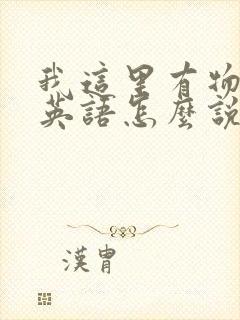 我這里有物
英語怎麼說
漢胄